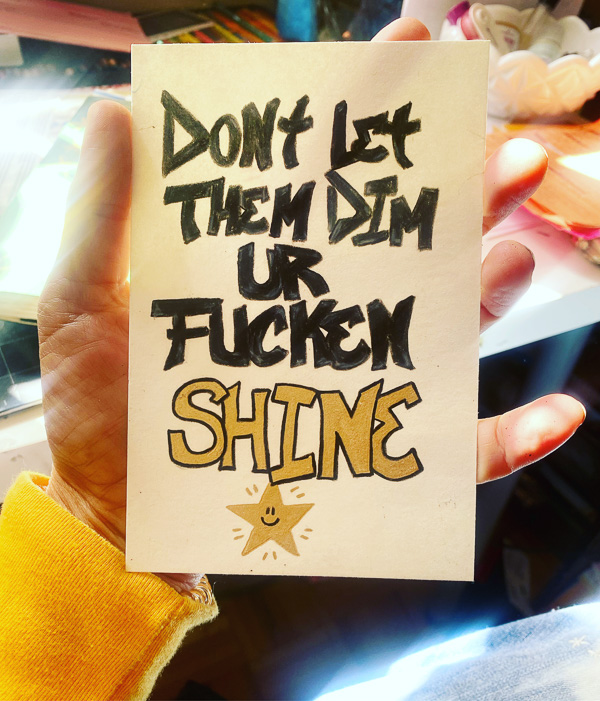 DONt LEt
THEM DIM
UR
FUCKEN
SHINE